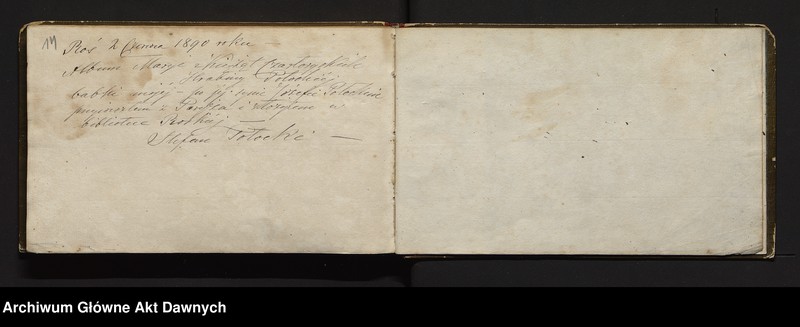 14
Roś 2 Czerwca 1890 roku —
Album Maryi z Książąt Czartoryskich
Hrabiny Potockiej
babki mojej – po jej synu Józefie Potockim
i złożone w
bibliotece Roskiej —
Stefan Potocki —
Archiwum Główne Akt Dawnych